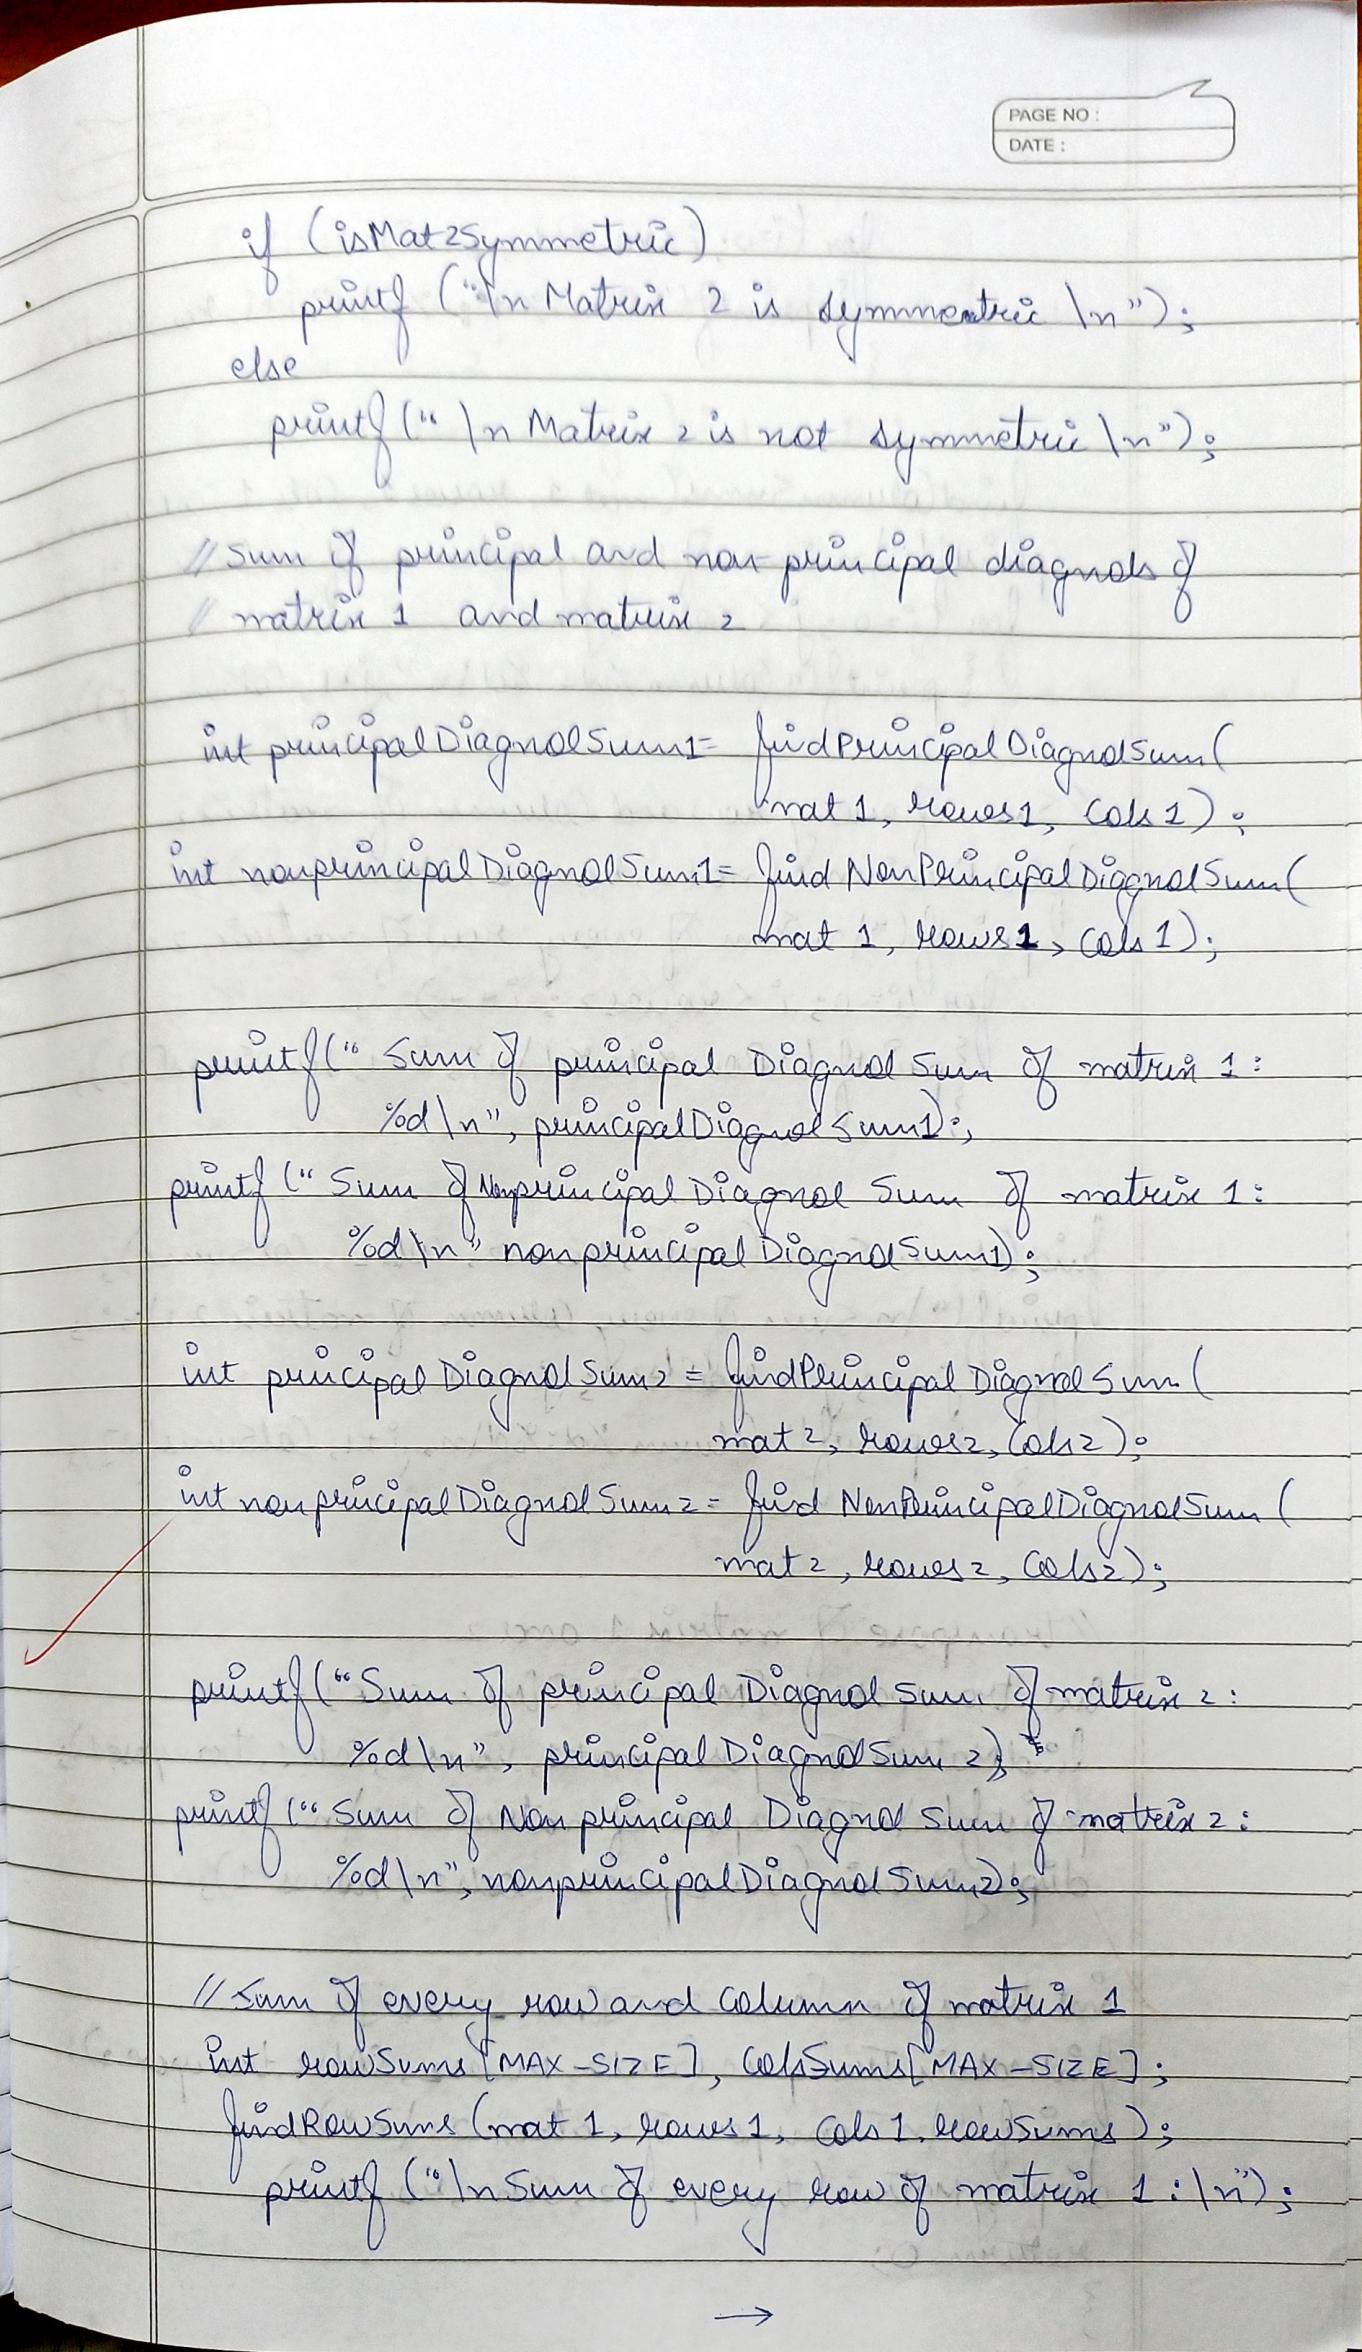 PAGE NO :
DATE :
if (isMat2Symmetric)
printf ("\n Matrix 2 is symmentric \n");
else
printf (" \n Matrix 2 is not symmetric \n");
// Sum of principal and non-principal diagnols of
// matrix 1 and matrix 2
int principalDiagnolSum1= findPrincipalDiagnolSum(
mat 1, rows1, cols 1);
int nonprincipalDiagnolSum1= find NonPrincipalDiagnolSum(
mat 1, rows1, cols 1);
printf(" Sum of principal Diagnol Sum of matrix 1 :
%d\n", principalDiagnolSum1);
printf (" Sum of Nonprincipal Diagnol Sum of matrix 1 :
%d\n" nonprincipalDiagnolSum1);
int principal DiagnolSum2 = findPrincipal DiagnolSum (
mat 2, rows2, cols2);
int nonprincipalDiagnolSum2= find NonPrincipalDiagnolSum (
mat 2, rows2, cols2);
printf("Sum of principal Diagnol Sum of matrix 2 :
%d\n", principalDiagnolSum 2);
printf (" Sum of Non principal Diagnol Sum of matrix 2 :
%d\n", nonprincipalDiagnolSum2);
// Sum of every row and column of matrix 1
int rowSums[MAX-SIZE], colsSums[MAX-SIZE];
findRowSums (mat 1, rows1, cols1, rowSums);
printf ("\nSum of every row of matrix 1 : \n");
→